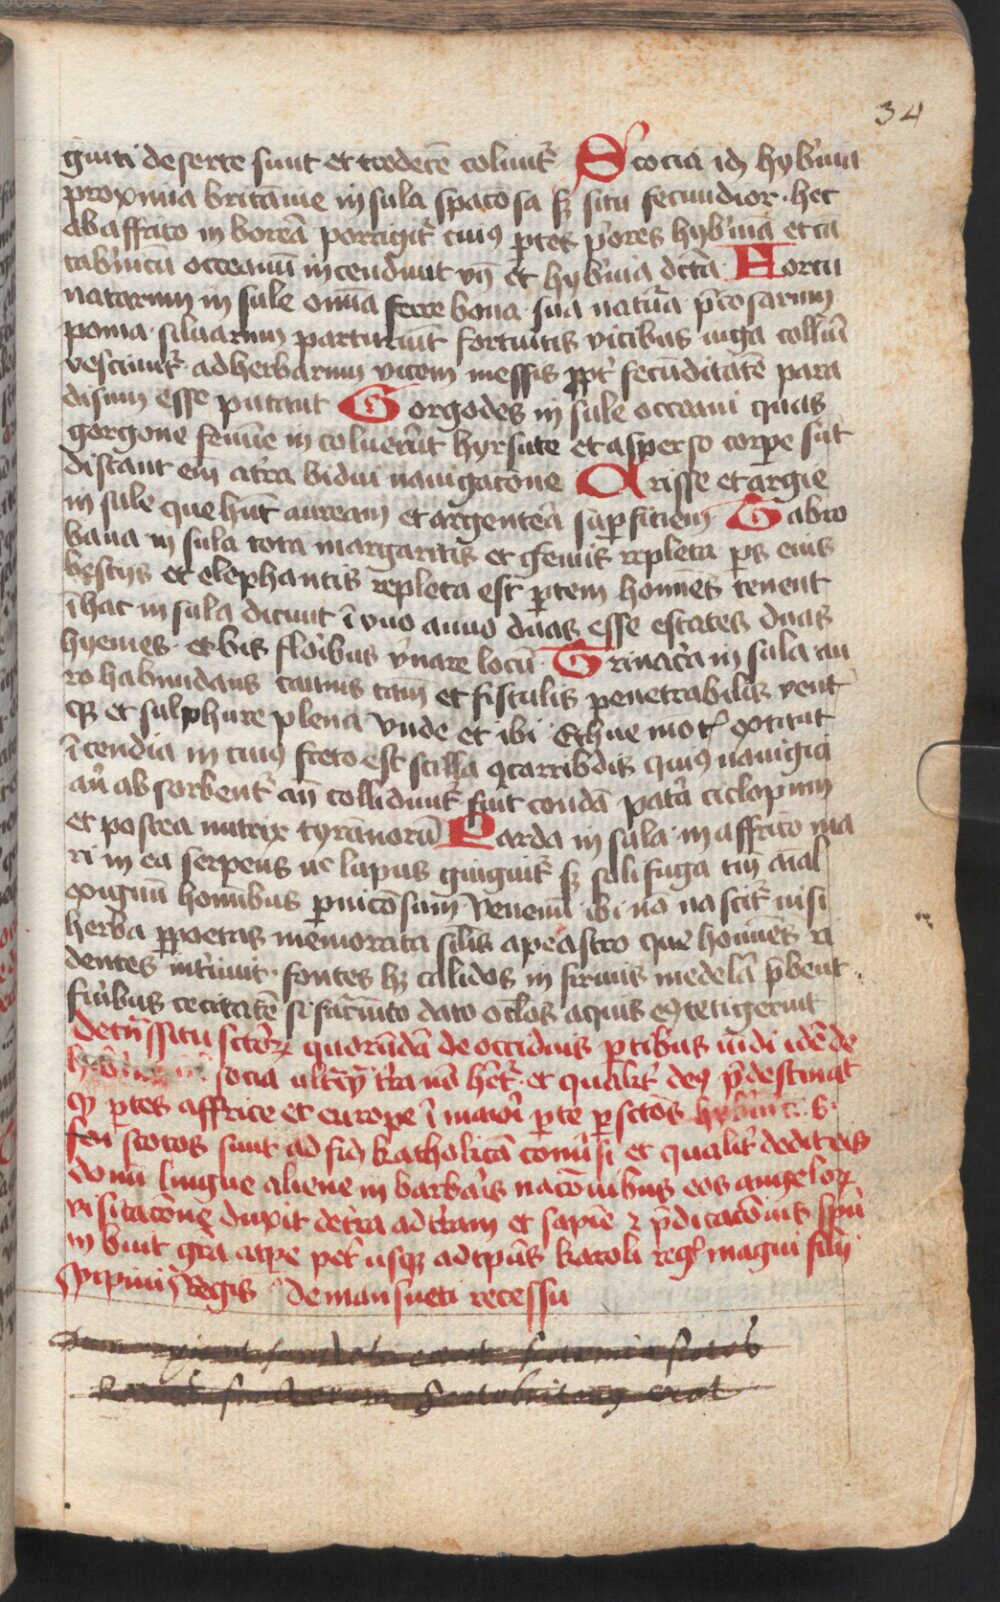 34
guiti deserte sunt et tredecē coluntr̄ Scocia id3 hyb'nia
proxima britānie insula spacōsa s3 situ fecundior · hec
ab affrico in boreā porrigitr̄ cuiꝰ ꝑtes p'ores hyb'niā et cā
tab'ricū occeanū incendunt vn̄ et hyb'nia dicta · Fortu
natarum insule omīa ferre bona · sua natura p̄cōsarum
poma · siluarum parturiūt fortuitis vicibus iuga colliū
vestiuntr̄ · ad herbarum vicem messis ꝓpt' fecūditatē para
disum esse putant Gorgodes insule occeani quas
gorgone femīe incoluerūt hyrsute et aspero corpe sūt
distant em̄ a tr̄ra bidui nauigacōne Crisse et argie
insule que hn̄t auream et argenteā suꝑficiem Tabro
bana insula tota margaritis et gemis repleta ꝑs eius
bestijs et elephantis repleta est ꝑtem homīes tenent
ī hac insula dicunt ī vno anno duas esse estates duas
hyemes · et bis floribus v'nare locū · Trinacria insula au
ro habundans cauīs tam̄ et fistulis penetrabilis vent
q3 et sulphure plena vnde et ibi Ethne mōt' extitit
īcendia in cuiꝰ freto est scilla ꝯcarribdis quiꝰ nauigia
aut absorbentr̄ aut collidūtr̄ fuit condā patria ciclopum
et postea nutrix tyrānorū Sarda insula · in affrico ma
ri in ea serpens nec lupus gignitr̄ s3 solifuga tm̄ aīal
exiguū homībus ꝑnicōsum Venenū ibi nō nascitr̄ nisi
herba ꝑ poetas memorata similis apeastro que homīes ri
dentes int'imit · fontes h3 calidos infirmis medelā p̄bent ·
furibus cecitatē si sacramēto dato oclos aquis ꝯtetigerint
quorūdā de occiduis ꝑtibus mūdi idē de
socia ultim' tr̄ra nō hetr̄ · et qualitr̄ deꝰ p̄destinat
q3 ꝑtes affrice et europe ī maiori ꝑte ꝑ sctōs
seu scotos sunt ad fid3 katholicā conūsi et qualitr̄ dedit eis
donū lingue aliene in barbaris nacōnibus eos angelor3
visitacōne duxit de tr̄ra ad tr̄ram et sapie ⁊ p̄dicacōnis spū
usq3 ad tp̄us karoli reg' magni filij
pipini Regis de mansueti recessu